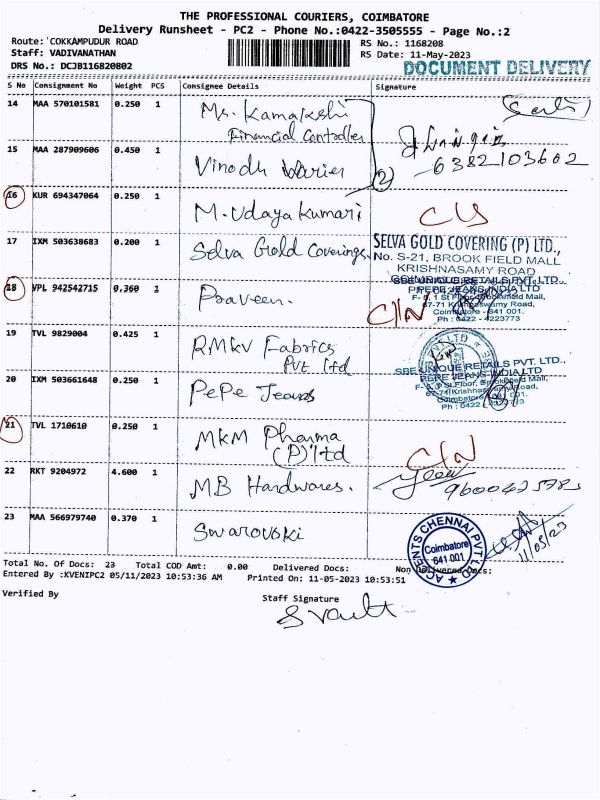 THE PROFESSIONAL COURIERS, COIMBATORE
Delivery Runsheet - PC2 - Phone No.:0422-3505555 - Page No.:2
Route: COKKAMPUDUR ROAD RS No.: 1168208
Staff: VADIVANATHAN RS Date: 11-May-2023
DRS No.: DCJB116820802 DOCUMENT DELIVERY
S No Consignment No Weight PCS Consignee Details Signature
14 MAA 570101581 0.250 1 Ms. Kamakshi
Financial Controller
15 MAA 287909606 0.450 1 Vinodh Warier 2 6382103602
16 KUR 694347064 0.250 1 M. Udaya Kumari
17 IXM 503638683 0.200 1 Selva Gold Coverings
SELVA GOLD COVERING (P) LTD.,
No. S-21, BROOK FIELD MALL
KRISHNASAMY ROAD
18 VPL 942542715 0.360 1 Praveen. C/N
SBE UNIQUE RETAILS PVT. LTD.,
PEPE JEANS INDIA LTD
F- 5, 1 St Floor, Brookefield Mall,
67-71 Krishnaswamy Road,
Coimbatore - 641 001.
Ph : 0422 - 4223773
19 TVL 9829004 0.425 1 RMKV Fabrics
Pvt ltd
20 IXM 503661648 0.250 1 PePe Jeans
SBE UNIQUE RETAILS PVT. LTD.,
PEPE JEANS INDIA LTD
21 TVL 1710610 0.250 1 MKM Pharma
(P) ltd C/N
22 RKT 9204972 4.600 1 MB Hardwares.
23 MAA 566979740 0.370 1 Swarovski
AGENTS CHENNAI PVT LTD
Coimbatore
641 001
11/05/23
Total No. Of Docs: 23 Total COD Amt: 0.00 Delivered Docs: Non Delivered Docs:
Entered By :KVENIPC2 05/11/2023 10:53:36 AM Printed On: 11-05-2023 10:53:51
Verified By Staff Signature